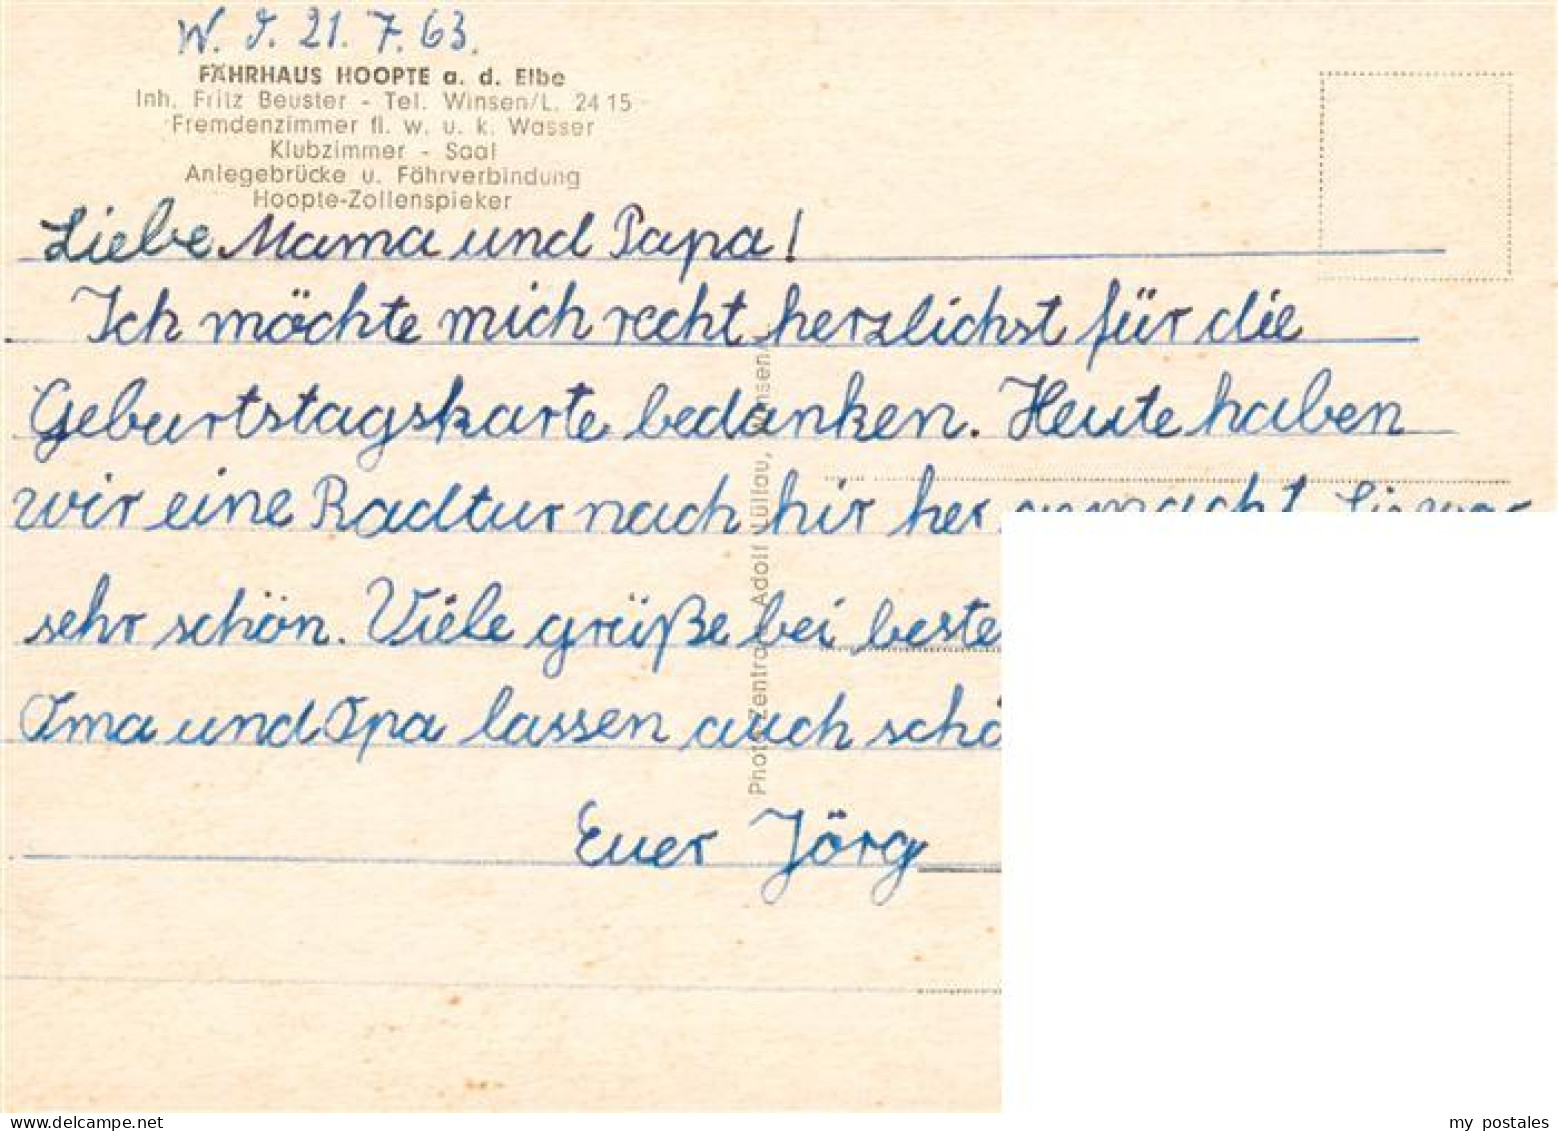 W. J. 21. 7. 63.
FÄHRHAUS HOOPTE a. d. Elbe
Inh. Fritz Beuster - Tel. Winsen/L. 24 15
Fremdenzimmer fl. w. u. k. Wasser
Klubzimmer - Saal
Anlegebrücke u. Fährverbindung
Hoopte-Zollenspieker
Liebe Mama und Papa!
Ich möchte mich recht herzlichst für die
Geburtstagskarte bedanken. Heute haben
wir eine Radtur nach hir her gemacht. Sie war
sehr schön. Viele grüße bei beste
Oma und Opa lassen auch schö
Euer Jörg
Photo-Zentrale Adolf Lüllau, Winsen/
my postales